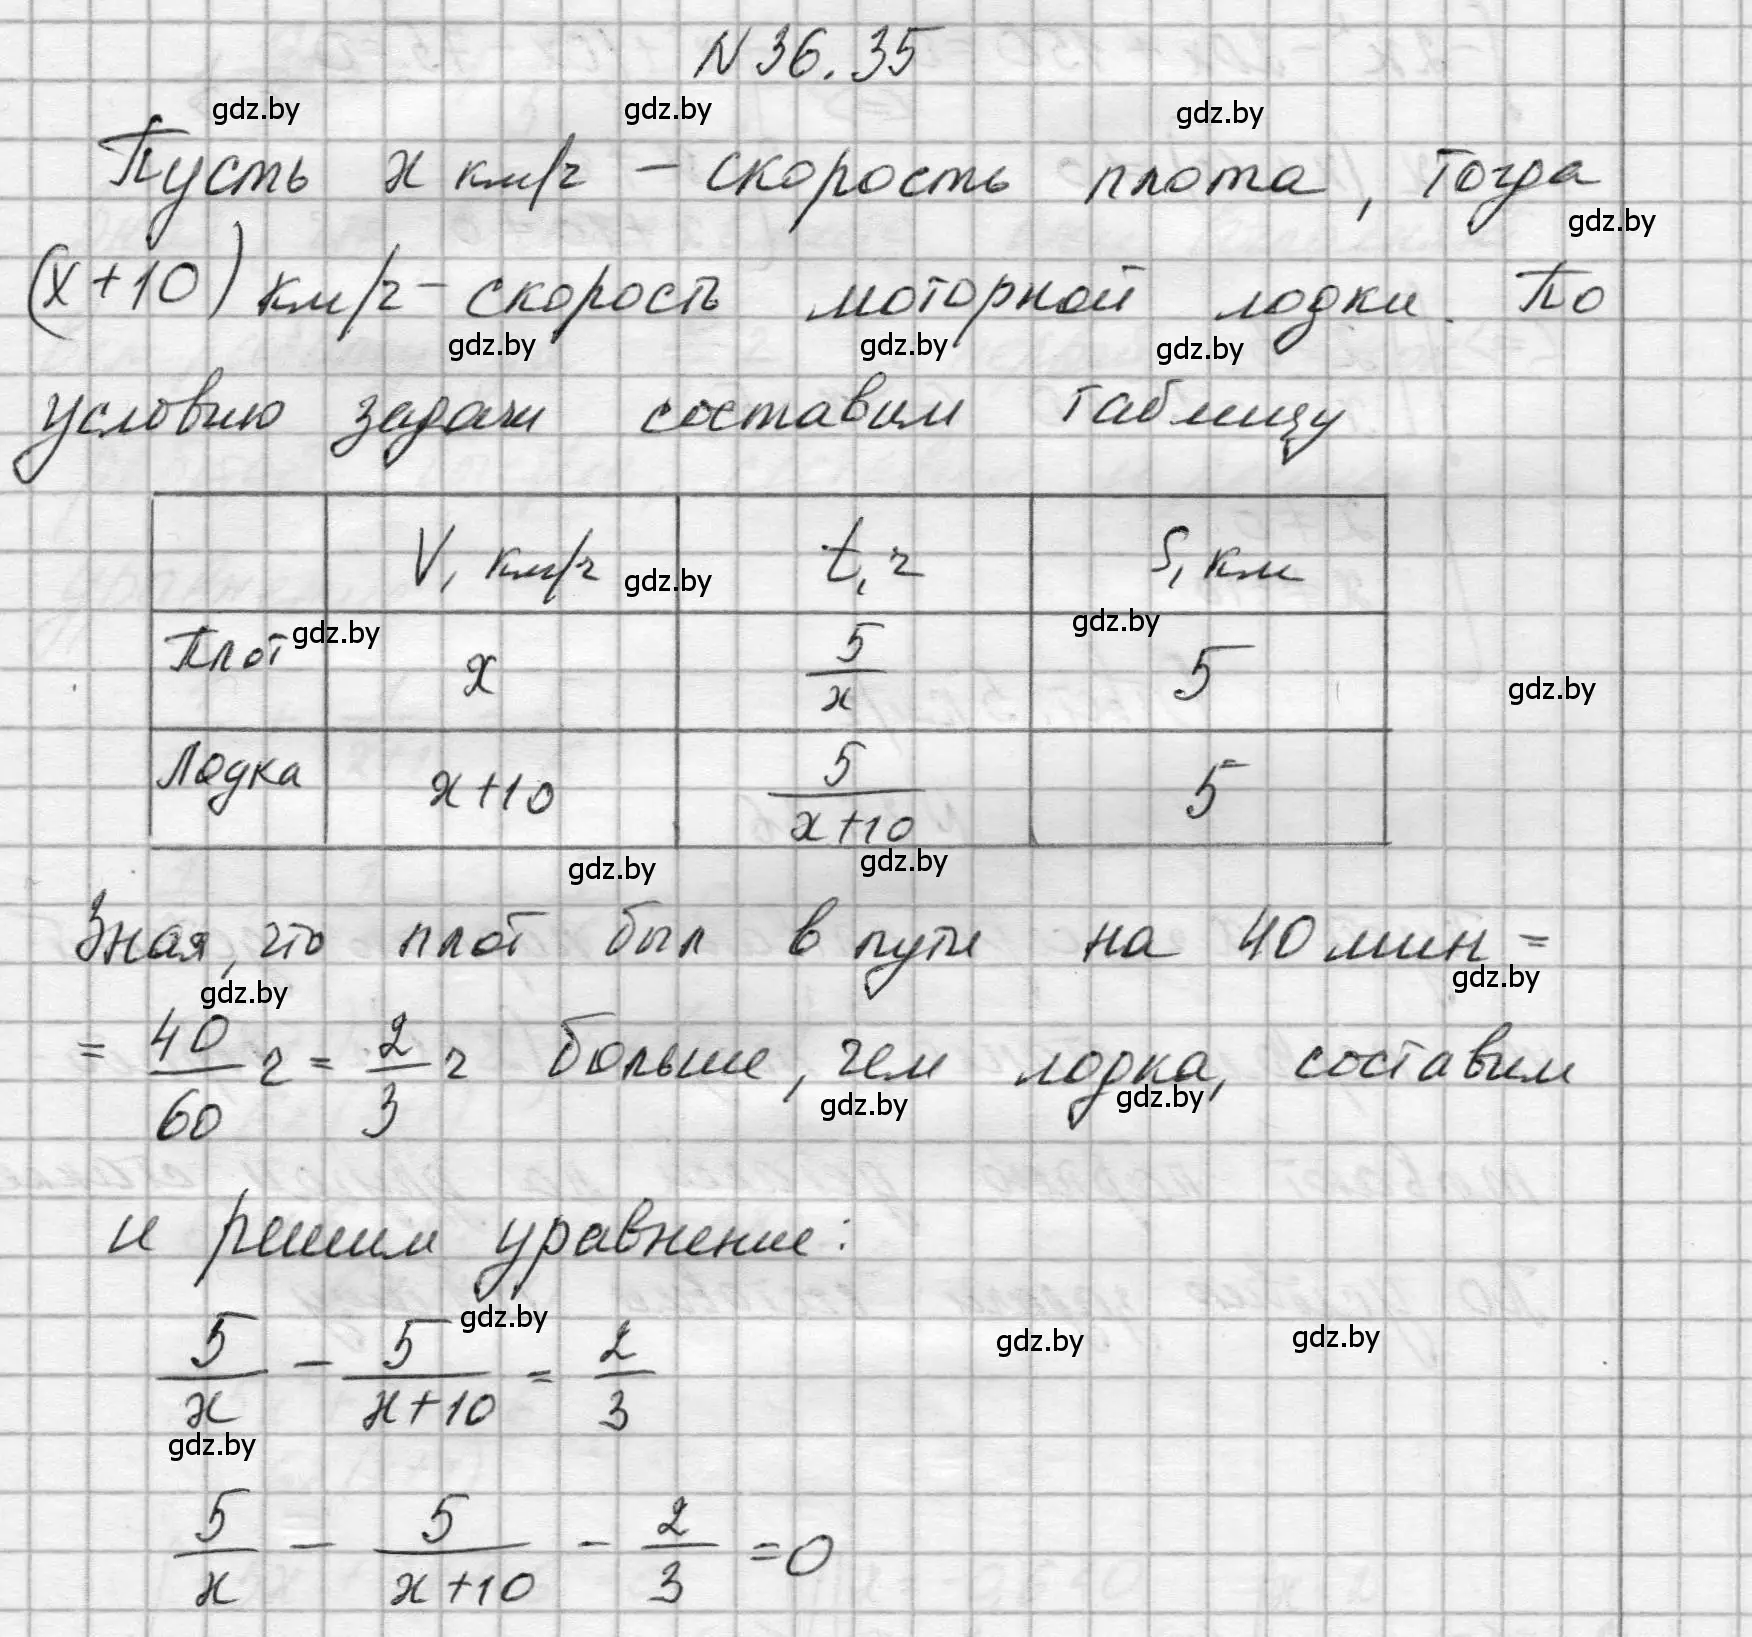 N 36.35
gdz.by gdz.by gdz.by
Пусть x км/ч – скорость плота, тогда
gdz.by
(x+10) км/ч – скорость моторной лодки. По
gdz.by gdz.by gdz.by
условию задачи составим таблицу
V, км/ч gdz.by t, ч S, км
gdz.by gdz.by
Плот x 5/x 5
gdz.by
Лодка x+10 5/(x+10) 5
gdz.by gdz.by
Зная, что плот был в пути на 40 мин =
gdz.by gdz.by
= 40/60 ч = 2/3 ч больше, чем лодка, составим
gdz.by gdz.by
и решим уравнение:
gdz.by gdz.by gdz.by
5/x – 5/(x+10) = 2/3
gdz.by
5/x – 5/(x+10) – 2/3 = 0